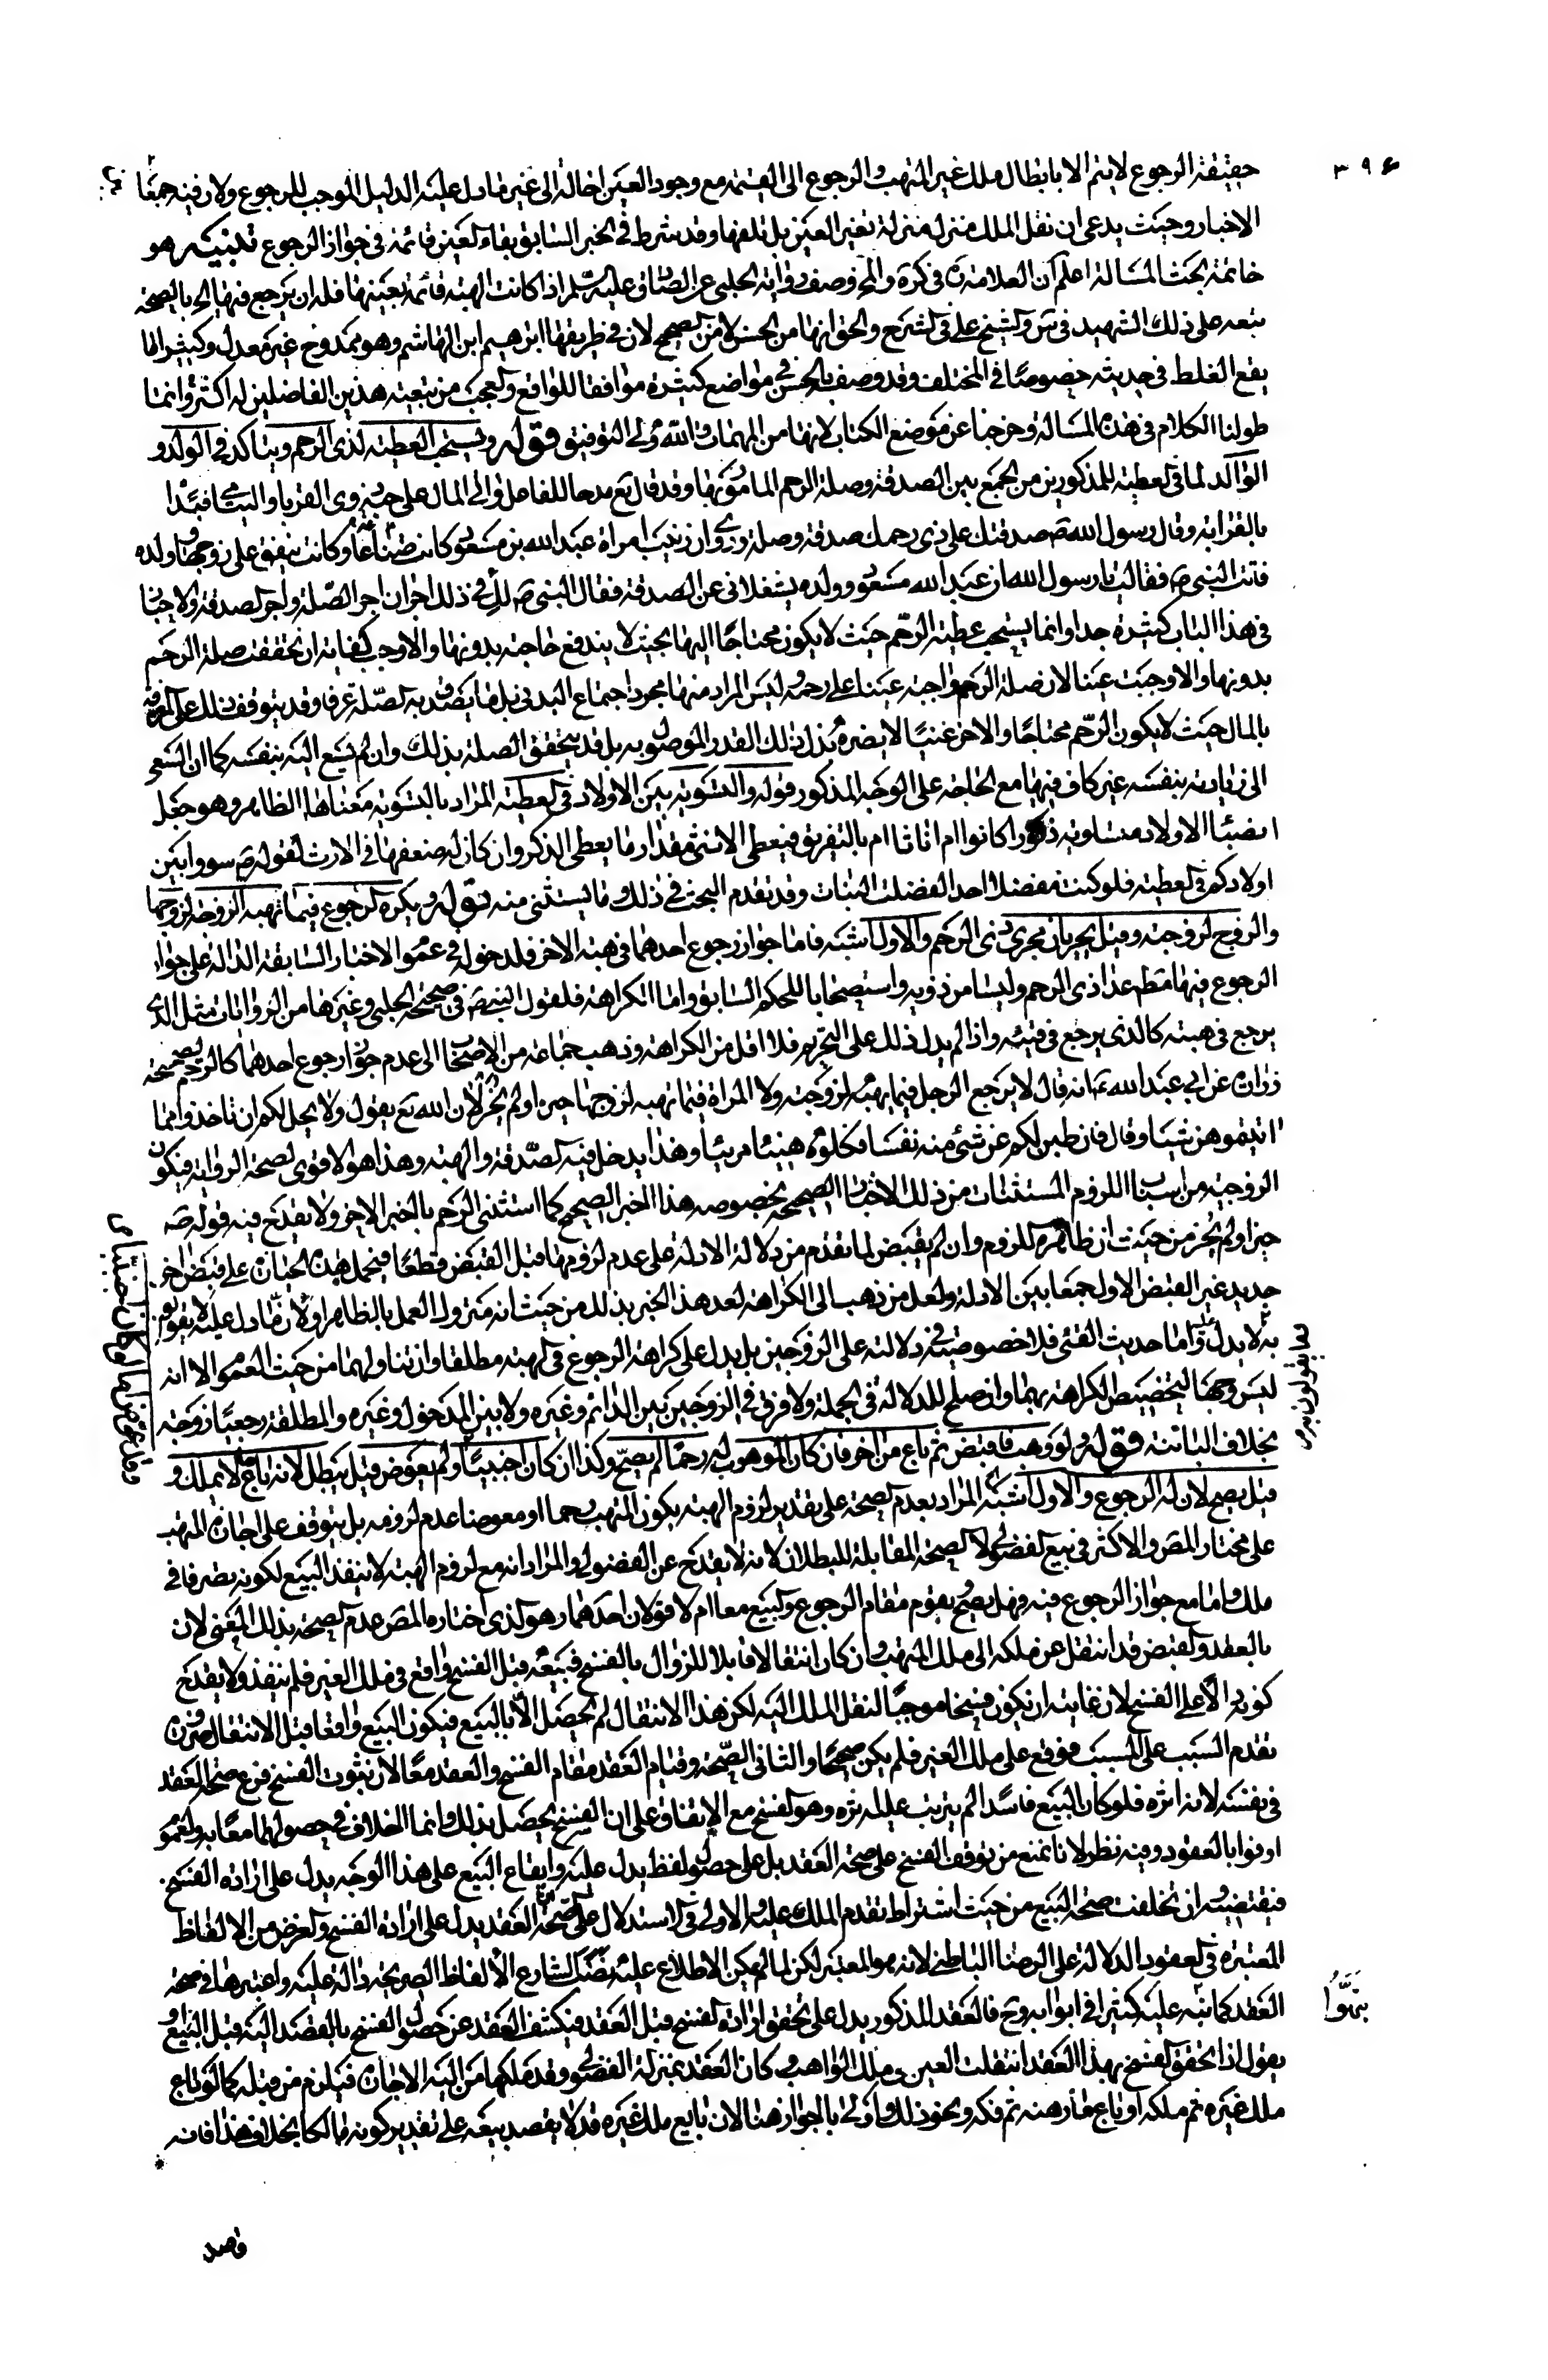 ٣٩۶
حقيقة الرجوع لا يتم الا بابطال ملك غير المتهب والرجوع الى القيمة مع وجود العين احالة الى غير ما دل عليه الدليل الموجب للرجوع ولان فيه جمعا
الاخبار وحيث يدعى ان نقل الملك منزله منزلة تغير العين بل تلفها وقد شرط فى الخبر السابق بقاء العين قائمة فى جواز الرجوع تنبيه هو
خاتمة لبحث المسالة اعلم ان العلامة ره فى كرة والمخ وصف رواية الحلبى عن الصادق عليه السلم اذا كانت الهبة قائمة بعينها فله ان يرجع فيها الخ بالصحة
تبعه على ذلك الشهيد فى س والشيخ على فى الشرح والحق انها من الحسن لا من الصحيح لان فى طريقها ابراهيم ابن الهاشم وهو ممدوح غير معدل وكثيرا ما
يقع الغلط فى حديثه خصوصا فى المختلف وقد وصف بالحسن فى مواضع كثيرة موافقا للواقع والعجب من تبعية هذين الفاضلين له اكثر وانما
طولنا الكلام فى هذه المسالة وخرجنا عن موضع الكتاب لانها من المهمات والله ولى التوفيق قوله ويستحب العطية لذى الرحم ويتاكد فى الولد و
الوالد لما فى العطية للمذكورين من الجمع بين الصدقة وصلة الرحم المامور بها وقد قال تع مدحا للفاعل واتى المال على حبه ذوى القربى واليتامى فبدا
بالقرابة وقال رسول الله ص صدقتك على ذى رحمك صدقة وصلة وروى ان زينب امراة عبد الله بن مسعود كانت صناعا وكانت تنفق على زوجها وولده
فاتت النبى ص فقالت يا رسول الله ان عبد الله مسعود وولده يشغلانى عن الصدقة فقال النبى ص لك فى ذلك اجران اجر الصلة واجر الصدقة والاخبار
فى هذا الباب كثيرة جدا وانما يستحب عطية الرحم حيث لا يكون محتاجا اليها بحيث لا يندفع حاجته بدونها والا وجب كفاية ان تحققت صلة الرحم
بدونها والا وجبت عينا لان صلة الرحم واجبة عينا على رحمه وليس المراد منها مجرد اجتماع البدنى بل ما يصدق به الصلة عرفا وقد يتوقف ذلك على المعونة
بالمال حيث لا يكون الرحم محتاجا والاخر غنيا لا يضره بذل ذلك القدر الموصول به بل قد يتحقق الصلة بذلك وان لم يسع اليه بنفسه كما ان السعى
الى زيارته بنفسه غير كاف فيها مع الحاجة على الوجه المذكور قوله والتسوية بين الاولاد فى العطية المراد بالتسوية معناها الظاهر وهو جعل
انصباء الاولاد متساوية ذكورا كانوا ام اناثا ام بالتفريق فيعطى الانثى مقدار ما يعطى الذكر وان كان له ضعفها فى الارث لقوله ص سووا بين
اولادكم فى العطية فلو كنت مفضلا احدا لفضلت البنات وقد تقدم البحث فى ذلك وما يستثنى منه قوله ويكره الرجوع فيما تهبه الزوجة لزوجها
والزوج لزوجته وقيل يجريان مجرى ذى الرحم والاول اشبه فاما جواز رجوع احدهما فى هبة الاخر فلدخوله فى عموم الاخبار السابقة الدالة على جواز
الرجوع فيها مط عدا ذى الرحم وليسا من ذويه واستصحابا للحكم السابق واما الكراهة فلقول النبى ص فى صحيحة الحلبى وغيرها من الروايات مثل الذى
يرجع فى هبته كالذى يرجع فى قيئه واذا لم يدل ذلك على التحريم فلا اقل من الكراهة وذهب جماعة من الاصحاب الى عدم جواز رجوع احدهما كالرحم لصحيحة
زرارة عن ابى عبد الله ع انه قال لا يرجع الرجل فيما يهبه لزوجته ولا المراة فيما تهبه لزوجها حيز او لم يحز لان الله تع يقول ولا يحل لكم ان تاخذوا مما
اتيتموهن شيئا وقال فان طبن لكم عن شئ منه نفسا فكلوه هنيئا مريئا وهذا يدخل فيه الصدقة والهبة وهذا هو الاقوى لصحة الرواية فيكون
الزوجية من اسباب اللزوم المستثنات من ذلك الاخبار الصحيحة بخصوصه هذا الخبر الصحيح كما استثنى الرحم بالخبر الاخر ولا يقدح فيه قوله ص
حيز او لم يحز من حيث ان ظاهره اللزوم وان لم يقبض لما تقدم من دلالة الادلة على عدم لزومها قبل القبض قطعا فيحمل هذه الحيازة على قبض اخر
جديد غير القبض الاول جمعا بين الادلة ولعل من ذهب الى الكراهة لعد هذا الخبر بذلك من حيث انه متروك العمل بالظاهر او لان ما دل عليه لا يقولون
به لا يدل واما حديث القئ فلا خصوصية فى دلالته على الزوجين بل يدل على كراهة الرجوع فى الهبة مطلقا وان تناولهما من حيث العموم الا انه
ليس وجها لتخصيص الكراهة بهما وان صلح للدلالة فى الجملة ولا فرق فى الزوجين بين الدائم وغيره ولا بين المدخول وغيره والمطلقة رجعيا زوجة
بخلاف البائنة قوله ولو وهب فاقبض ثم باع من اخر فان كان الموهوب له رحما لم يصح وكذا ان كان اجنبيا ولم يعوض قيل يبطل لانه باع ما لا يملك و
قيل يصح لان له الرجوع والاول اشبه المراد بعدم الصحة على تقدير لزوم الهبة يكون المتهب رحما او معوضا عدم لزومه بل يتوقف على اجازة المتهب
على مختار المص والاكثر فى بيع الفضولى لا الصحة المقابلة للبطلان لانه لا يقدح عن الفضولى والمراد انه مع لزوم الهبة لا ينفذ البيع لكونه تصرفا فى
ملك واما مع جواز الرجوع فيه فهل يصح يقوم مقام الرجوع والبيع معا ام لا قولان احدهما وهو الذى اختاره المص عدم الصحة بذلك المعنى لان
بالعقد والقبض قد انتقل عن ملكه الى ملك المتهب وان كان انتقالا قابلا للزوال بالفسخ فبيعه قبل الفسخ واقع فى ملك الغير فلم ينفذ ولا يقدح
كونه دالا على الفسخ لان غايته ان يكون فسخا موجبا لنقل الملك اليه لكن هذا الانتقال لم يحصل الا بالبيع فيكون البيع واقعا قبل الانتقال ضرورة
تقدم السبب على المسبب فوقع على ملك الغير فلم يكن صحيحا والثانى الصحة وقيام العقد مقام الفسخ والعقد معا لان ثبوت الفسخ فرع صحة العقد
فى نفسه لانه اثره فلو كان البيع فاسدا لم يترتب عليه اثره وهو الفسخ مع الاتفاق على ان الفسخ يحصل بذلك وانما الخلاف فى حصولهما معا به ولعموم
اوفوا بالعقود وفيه نظر لانا نمنع من توقف الفسخ على صحة العقد بل على حصول لفظ يدل عليه وايقاع البيع على هذا الوجه يدل على ارادة الفسخ
فيقتضيه وان تخلفت صحة البيع من حيث اشتراط تقدم الملك عليه والاولى فى الاستدلال على صحة العقد يدل على ارادة الفسخ والغرض من الالفاظ
المعتبرة فى العقود الدلالة على الرضا الباطنى لانه هو المعتبر لكن لما لم يمكن الاطلاع عليه نصب الشارع الالفاظ الصريحة دالة عليه واعتبرها فى صحة
العقد كما نبه عليه كثيرا فى ابوابه وح فالعقد المذكور يدل على تحقق ارادة الفسخ قبل العقد فيكشف العقد عن حصول الفسخ بالقصد اليه قبل البيع او
يقول اذا تحقق الفسخ بهذا العقد انتقلت العين الى ملك الواهب وكان العقد بمنزلة الفضولى وقد ملكها من اليه الاجازة فيلزم من قبله كما لو باع
ملك غيره ثم ملكه او باع ما رهنه ثم فكه ونحو ذلك واولى بالجواز هنا لان بايع ملك غيره قد لا يقصد بيعه على تقدير كونه مالكا بخلاف هذا فانه
قصد